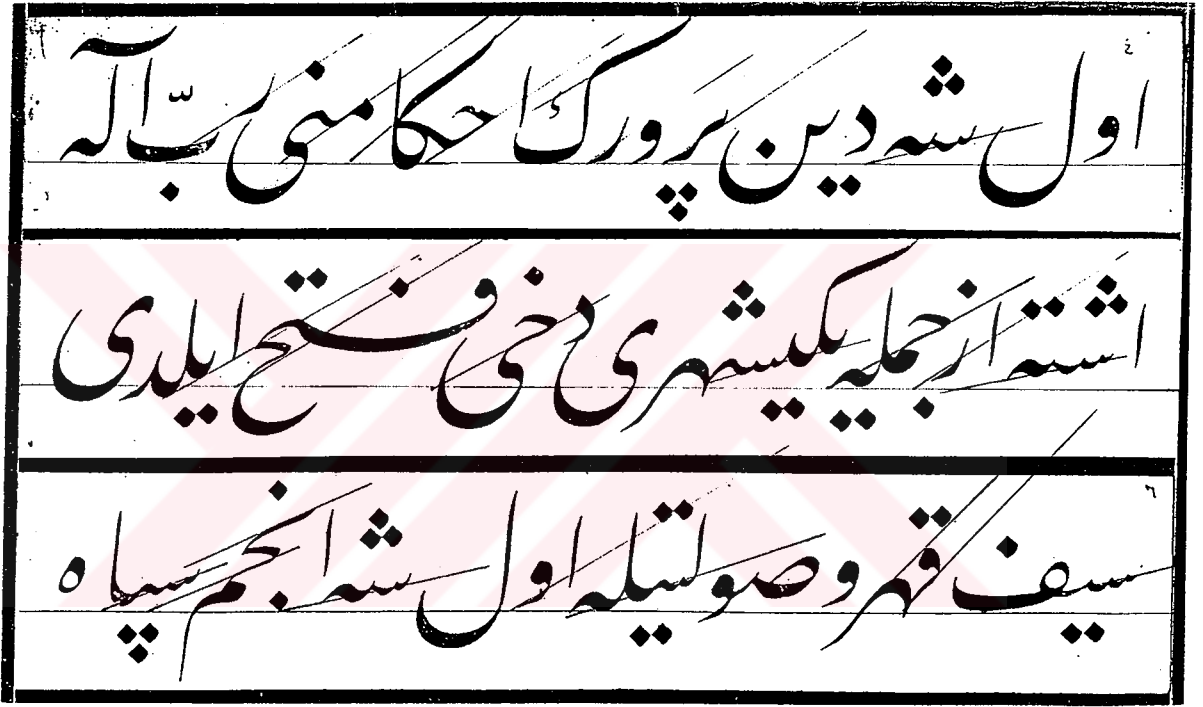 ٤ اول شه دین پرورك احكامنی ربّ آله
اشته از جمله یكیشهری دخی فتح ایلدی
٦ سیف قهر و صولتیله اول شه انجم سپاه